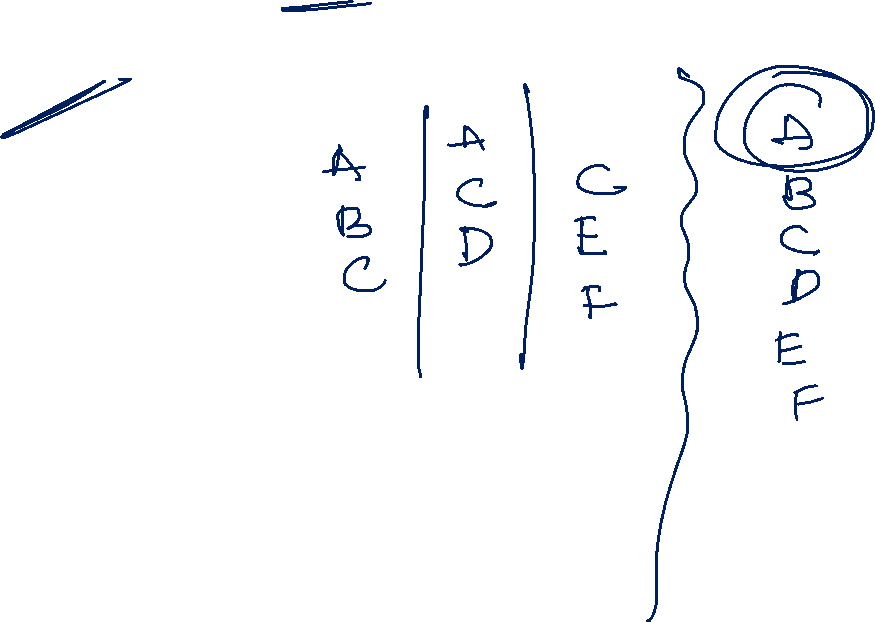 A
B
C
A
C
D
C
E
F
A
B
C
D
E
F